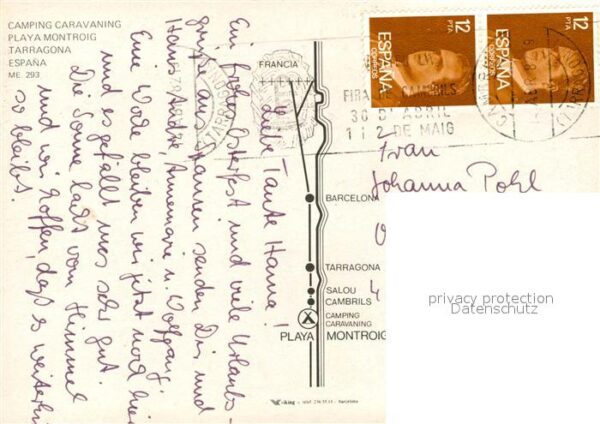 CAMPING CARAVANING
PLAYA MONTROIG
TARRAGONA
ESPAÑA
ME. 293
Liebe Tante Hanna!
Ein frohes Osterfest und viele Urlaubs-
grüße aus Spanien senden Dir und
Hans Annemarie u. Wolfgang.
Eine Woche bleiben wir jetzt noch hier
und es gefällt uns sehr gut.
Die Sonne lacht vom Himmel
und wir hoffen, daß es weiterhin
so bleibt.
FRANCIA
BARCELONA
TARRAGONA
SALOU
CAMBRILS
CAMPING
CARAVANING
PLAYA MONTROIG
12
PTA
ESPAÑA
CORREOS
12
PTA
ESPAÑA
CORREOS
FIRA CAMBRILS
30 D'ABRIL
1 I 2 DE MAIG
Frau
Johanna Pohl
4
privacy protection
Datenschutz